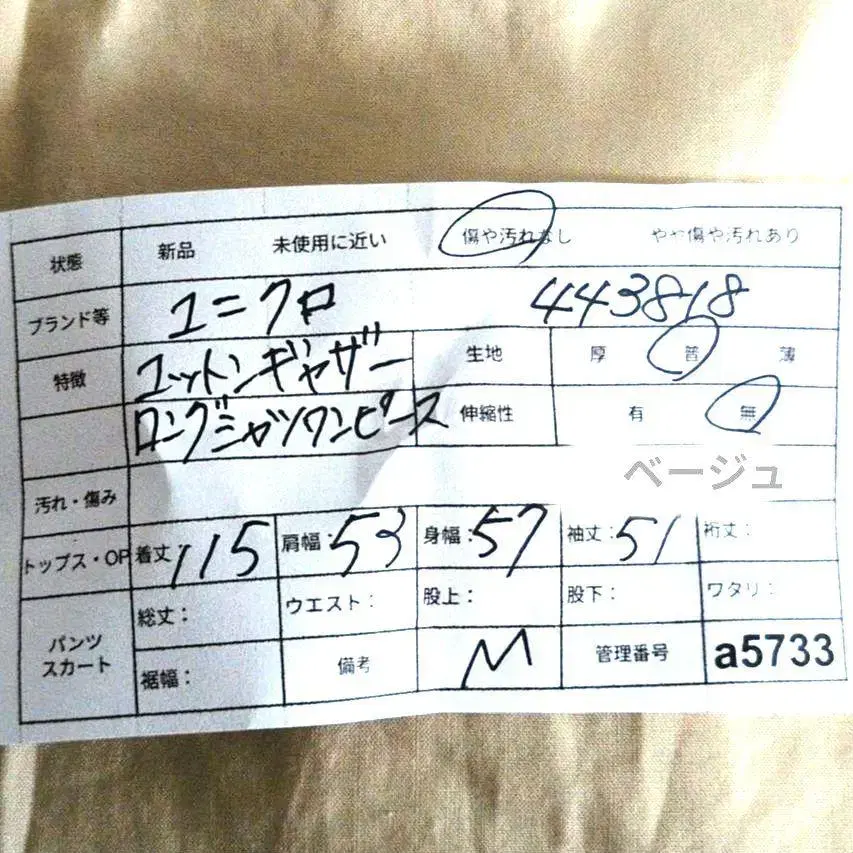 状態 新品 未使用に近い 傷や汚れなし やや傷や汚れあり
ブランド等 ユニクロ 443818
特徴 コットンギャザー 生地 厚 普 薄
ロングシャツワンピース 伸縮性 有 無
ベージュ
汚れ・傷み
トップス・OP 着丈:115 肩幅:53 身幅:57 袖丈:51 裄丈:
パンツ スカート 総丈: ウエスト: 股上: 股下: ワタリ:
裾幅: 備考 M 管理番号 a5733